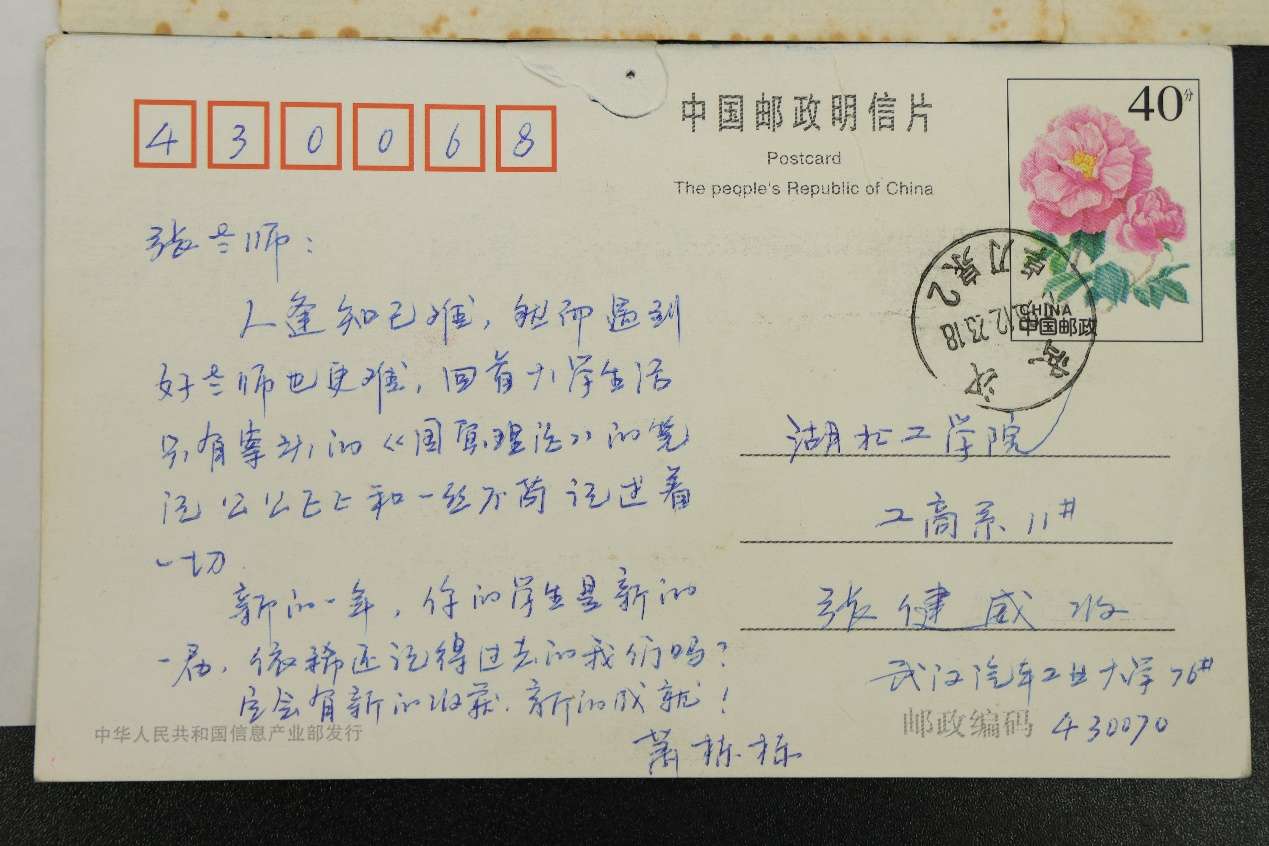 430068
中国邮政明信片
Postcard
The people's Republic of China
40分
CHINA
中国邮政
张老师:
人逢知己难,然而遇到
好老师也更难,回首大学生活
只有寥寥的《国原理论》的笔
记公公正正和一丝不苟记述着
一切.
新的一年,你的学生是新的
一届,依稀还记得过去的我们吗?
定会有新的收获.新的成就!
萧栎栎
湖北工学院
工商系 11#
张健威 收
武汉汽车工业大学 76#
邮政编码 430070
中华人民共和国信息产业部发行